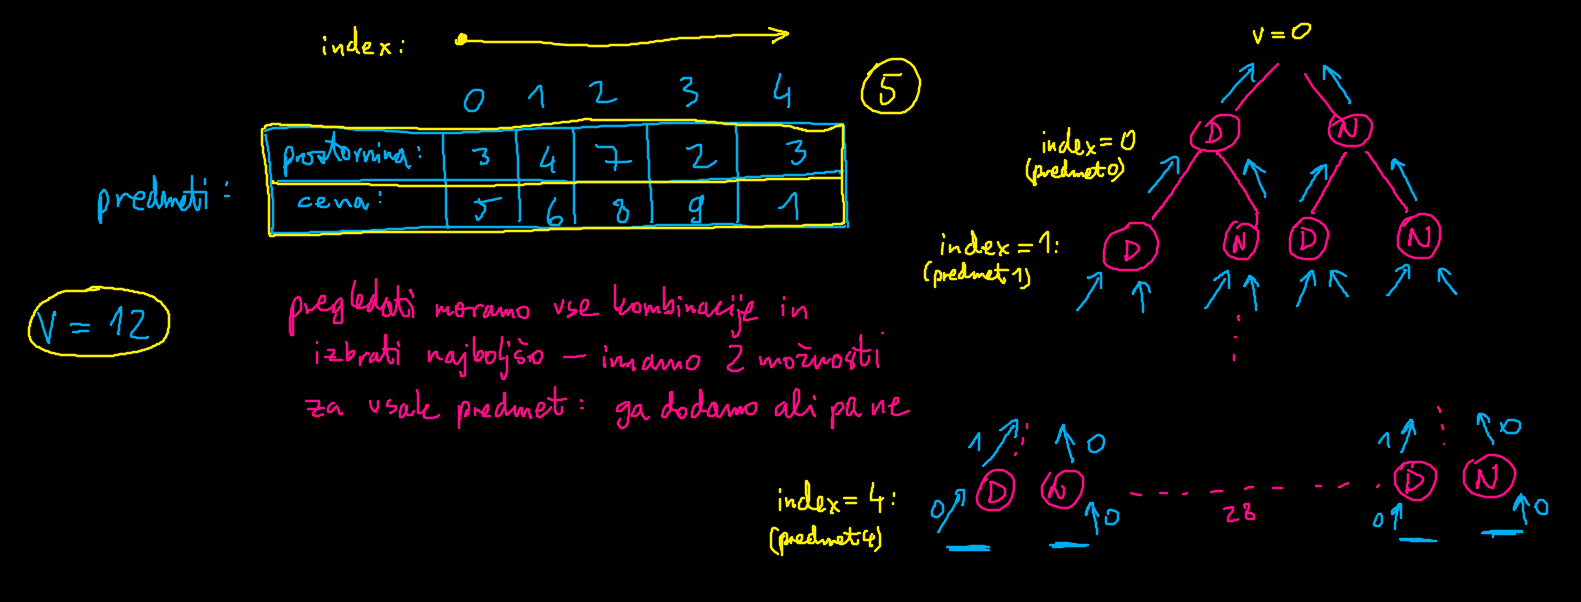 index:
0 1 2 3 4
5
predmeti:
prostornina: 3 4 7 2 3
cena: 5 6 8 9 1
V = 12
pregledati moramo vse kombinacije in
izbrati najboljšo – imamo 2 možnosti
za vsak predmet: ga dodamo ali pa ne
v=0
index=0
(predmet 0)
D N
index=1:
(predmet 1)
D N D N
1 0 1 0
index=4:
(predmet 4)
D N D N
28
0 0 0 0